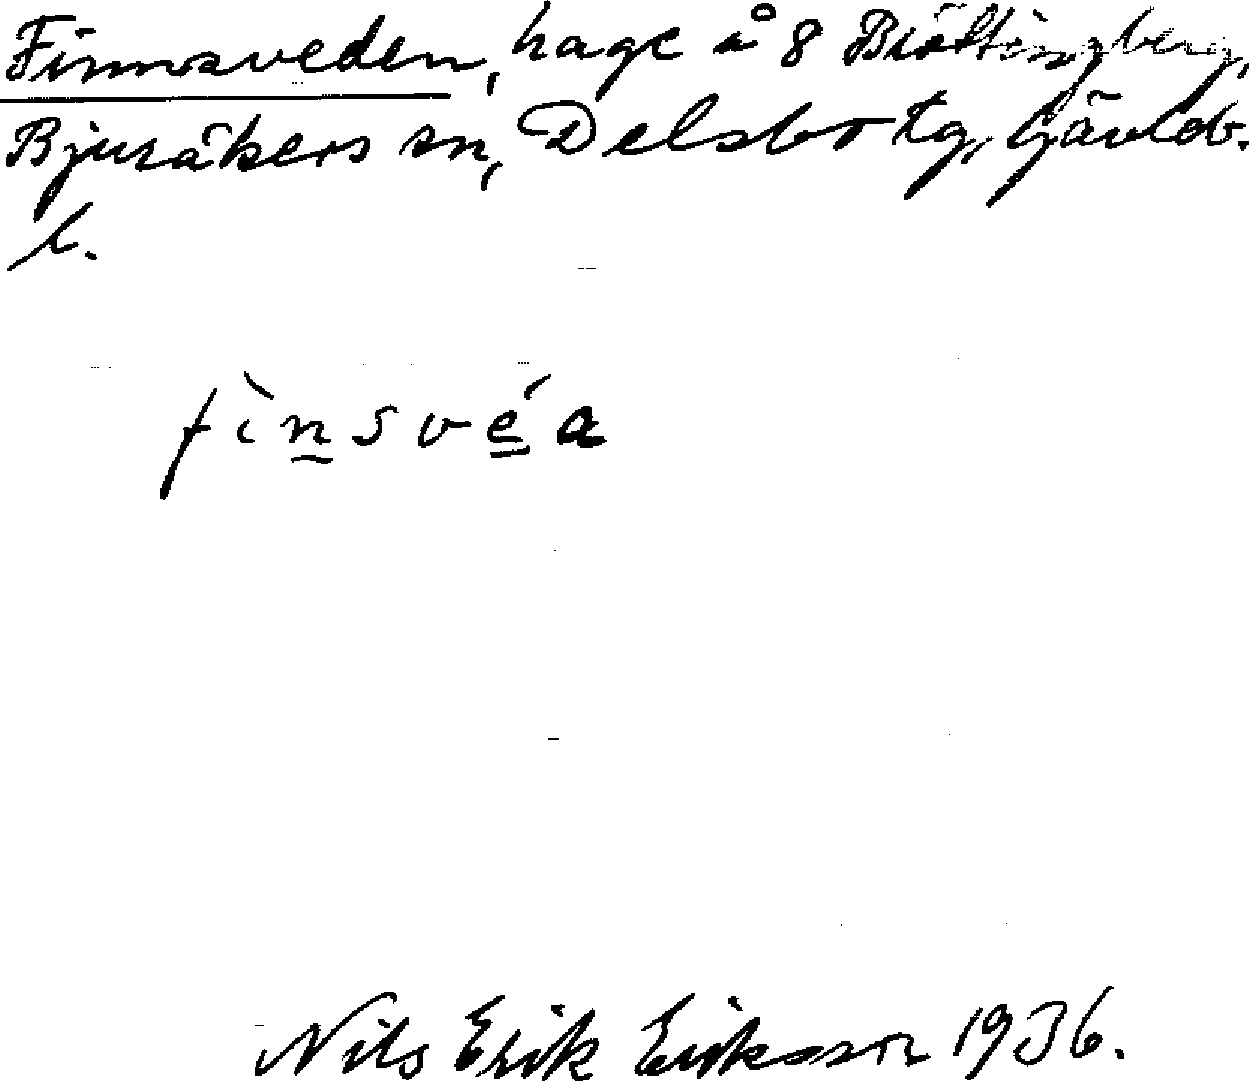 Finnsveden, hage å 8 Bröttingberg,
Bjuråkers sn, Delsbo tg, Gävleb.
l.
fìnsvéa
Nils Erik Eriksson 1936.